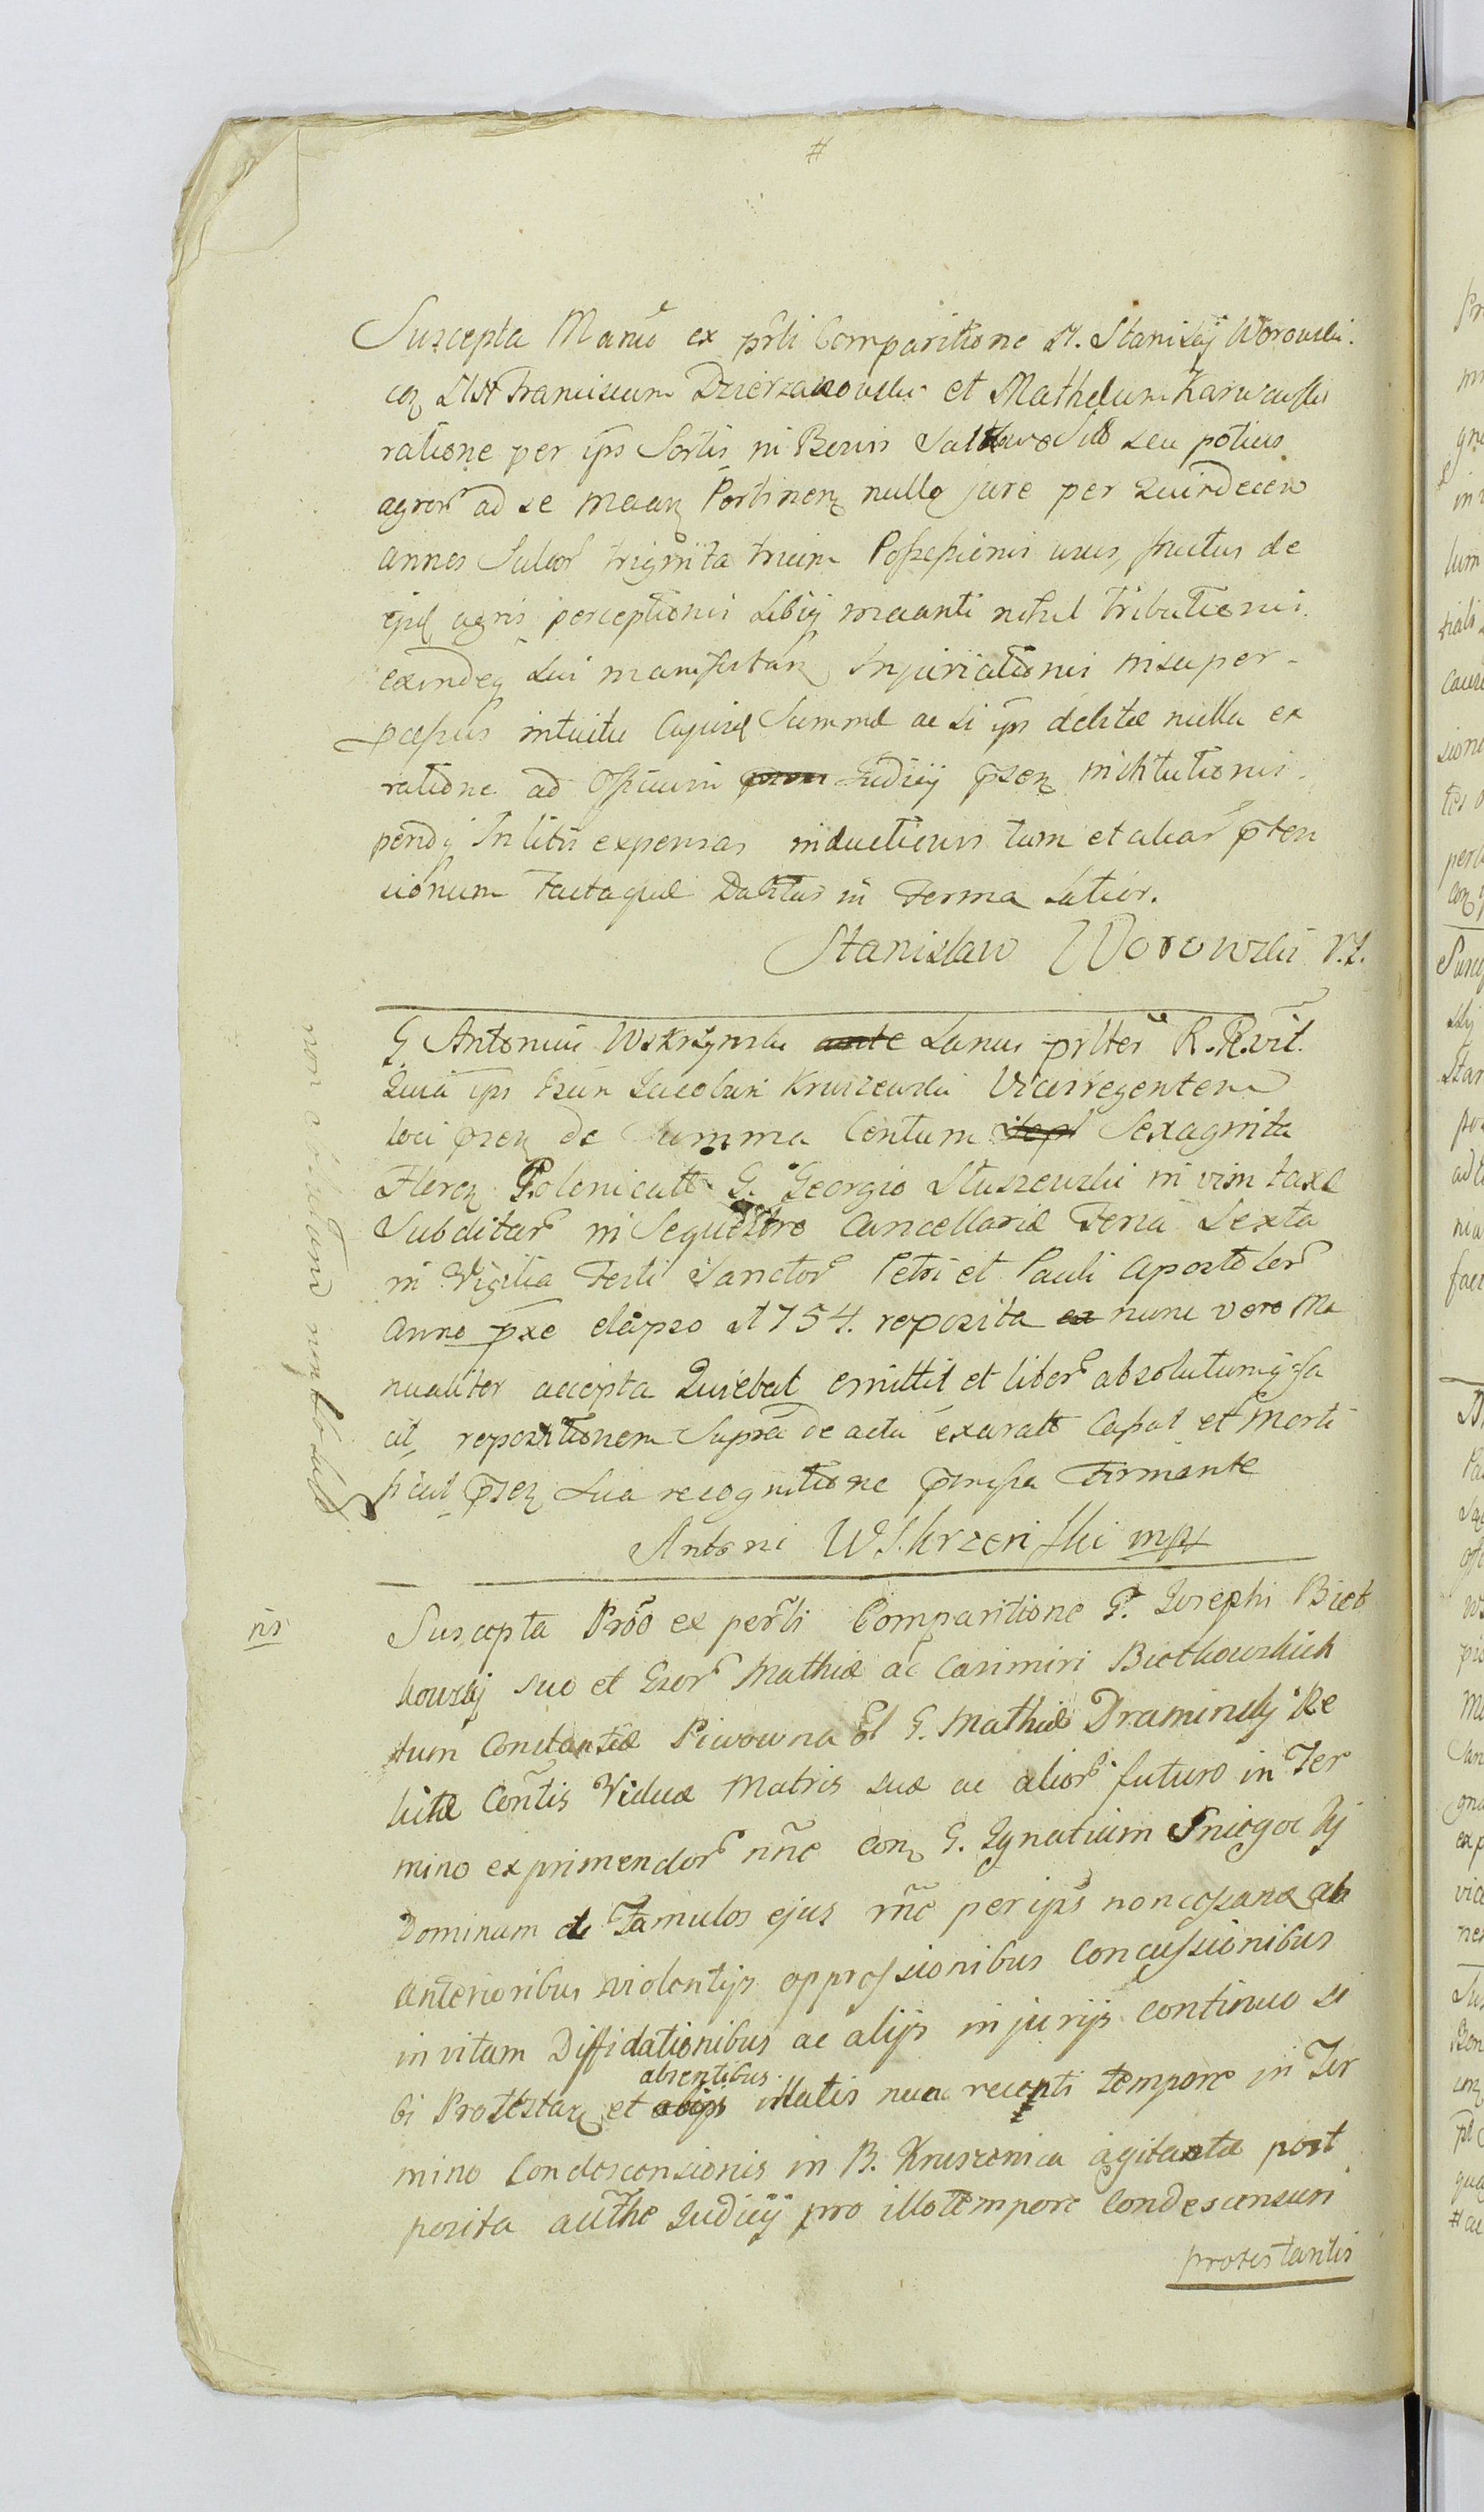 #
Suscepta Manło ex prłti Comparitione N. Stanislaj Worowski.
coz NN Franciscum Dzierzanowski et Mathelum Karwowski
ratione per ips Sortis in Bonis seu potius
agror ad se maan Pertinen nullo jure per Quindecem
annos Sulcor triginta trium Possessionis usus, fructus de
ejsd agris perceptionis Sibiq maanti nihil tributionis.
exindeq Sui manifestan Injuriationis insuper
pcessus intuitu Cujusd Summæ ac si ips debitæ nulla ex
ratione ad Officium Judicij psen institutionis.
pendq In litis expensas inductionis tum et aliar pten
sionum Factaque Dabitur in Forma Latior.
Stanislaw Worowski V.Z.
G Antonius Wskrzynski ante Sanus prltēr R.R.vit.
Quia ips Gsum Jacobum Kruszewski Viceregentem
loci psen de Summa Centum Sept Sexaginta
Floren Polonicalt G. Georgio Stuszewski in vim taxæ
Subditar in Sequestro Cancellariæ Feria Sexta
in Vigilia Festi Sanctor Petri et Pauli Apostolor
Anno pxe elapso 1754. reposita ex nunc vero Ma
nualiter accepta Quietat emittit et liber absolutumq fa
cit, repositionem Supra de actu exarato Casat et Morti
ficat psen Sua recognitione pmissa Firmante
Antoni WSkrzeniski mp
ns
Suscepta Prõo ex pertli Comparitione G. Josephi Biet
kowskj suo et Gsor Mathiæ ac Casimiri Bietkowskich
tum Constantiæ Piwowna Et G. Mathiæ Draminskj Re
lictæ Contis Viduæ Matris suæ ac alior futuro in Ter
mino exprimendor nñe con G. Ignatium Sniegockj
Dominum de Famulos ejus rñe per ips non cessanæ ab
anterioribus violentijs oppressionibus Concussionibus
in vitam Diffidationibus ac alijs injurijs continuo si
bi Protestan et alijs absentibus illatis nunc recenti tempore in Ter
mino Condescensionis in B. Kruszenica agitantæ post
posita authē Judicij pro illotempore Condescensuri
protestantis